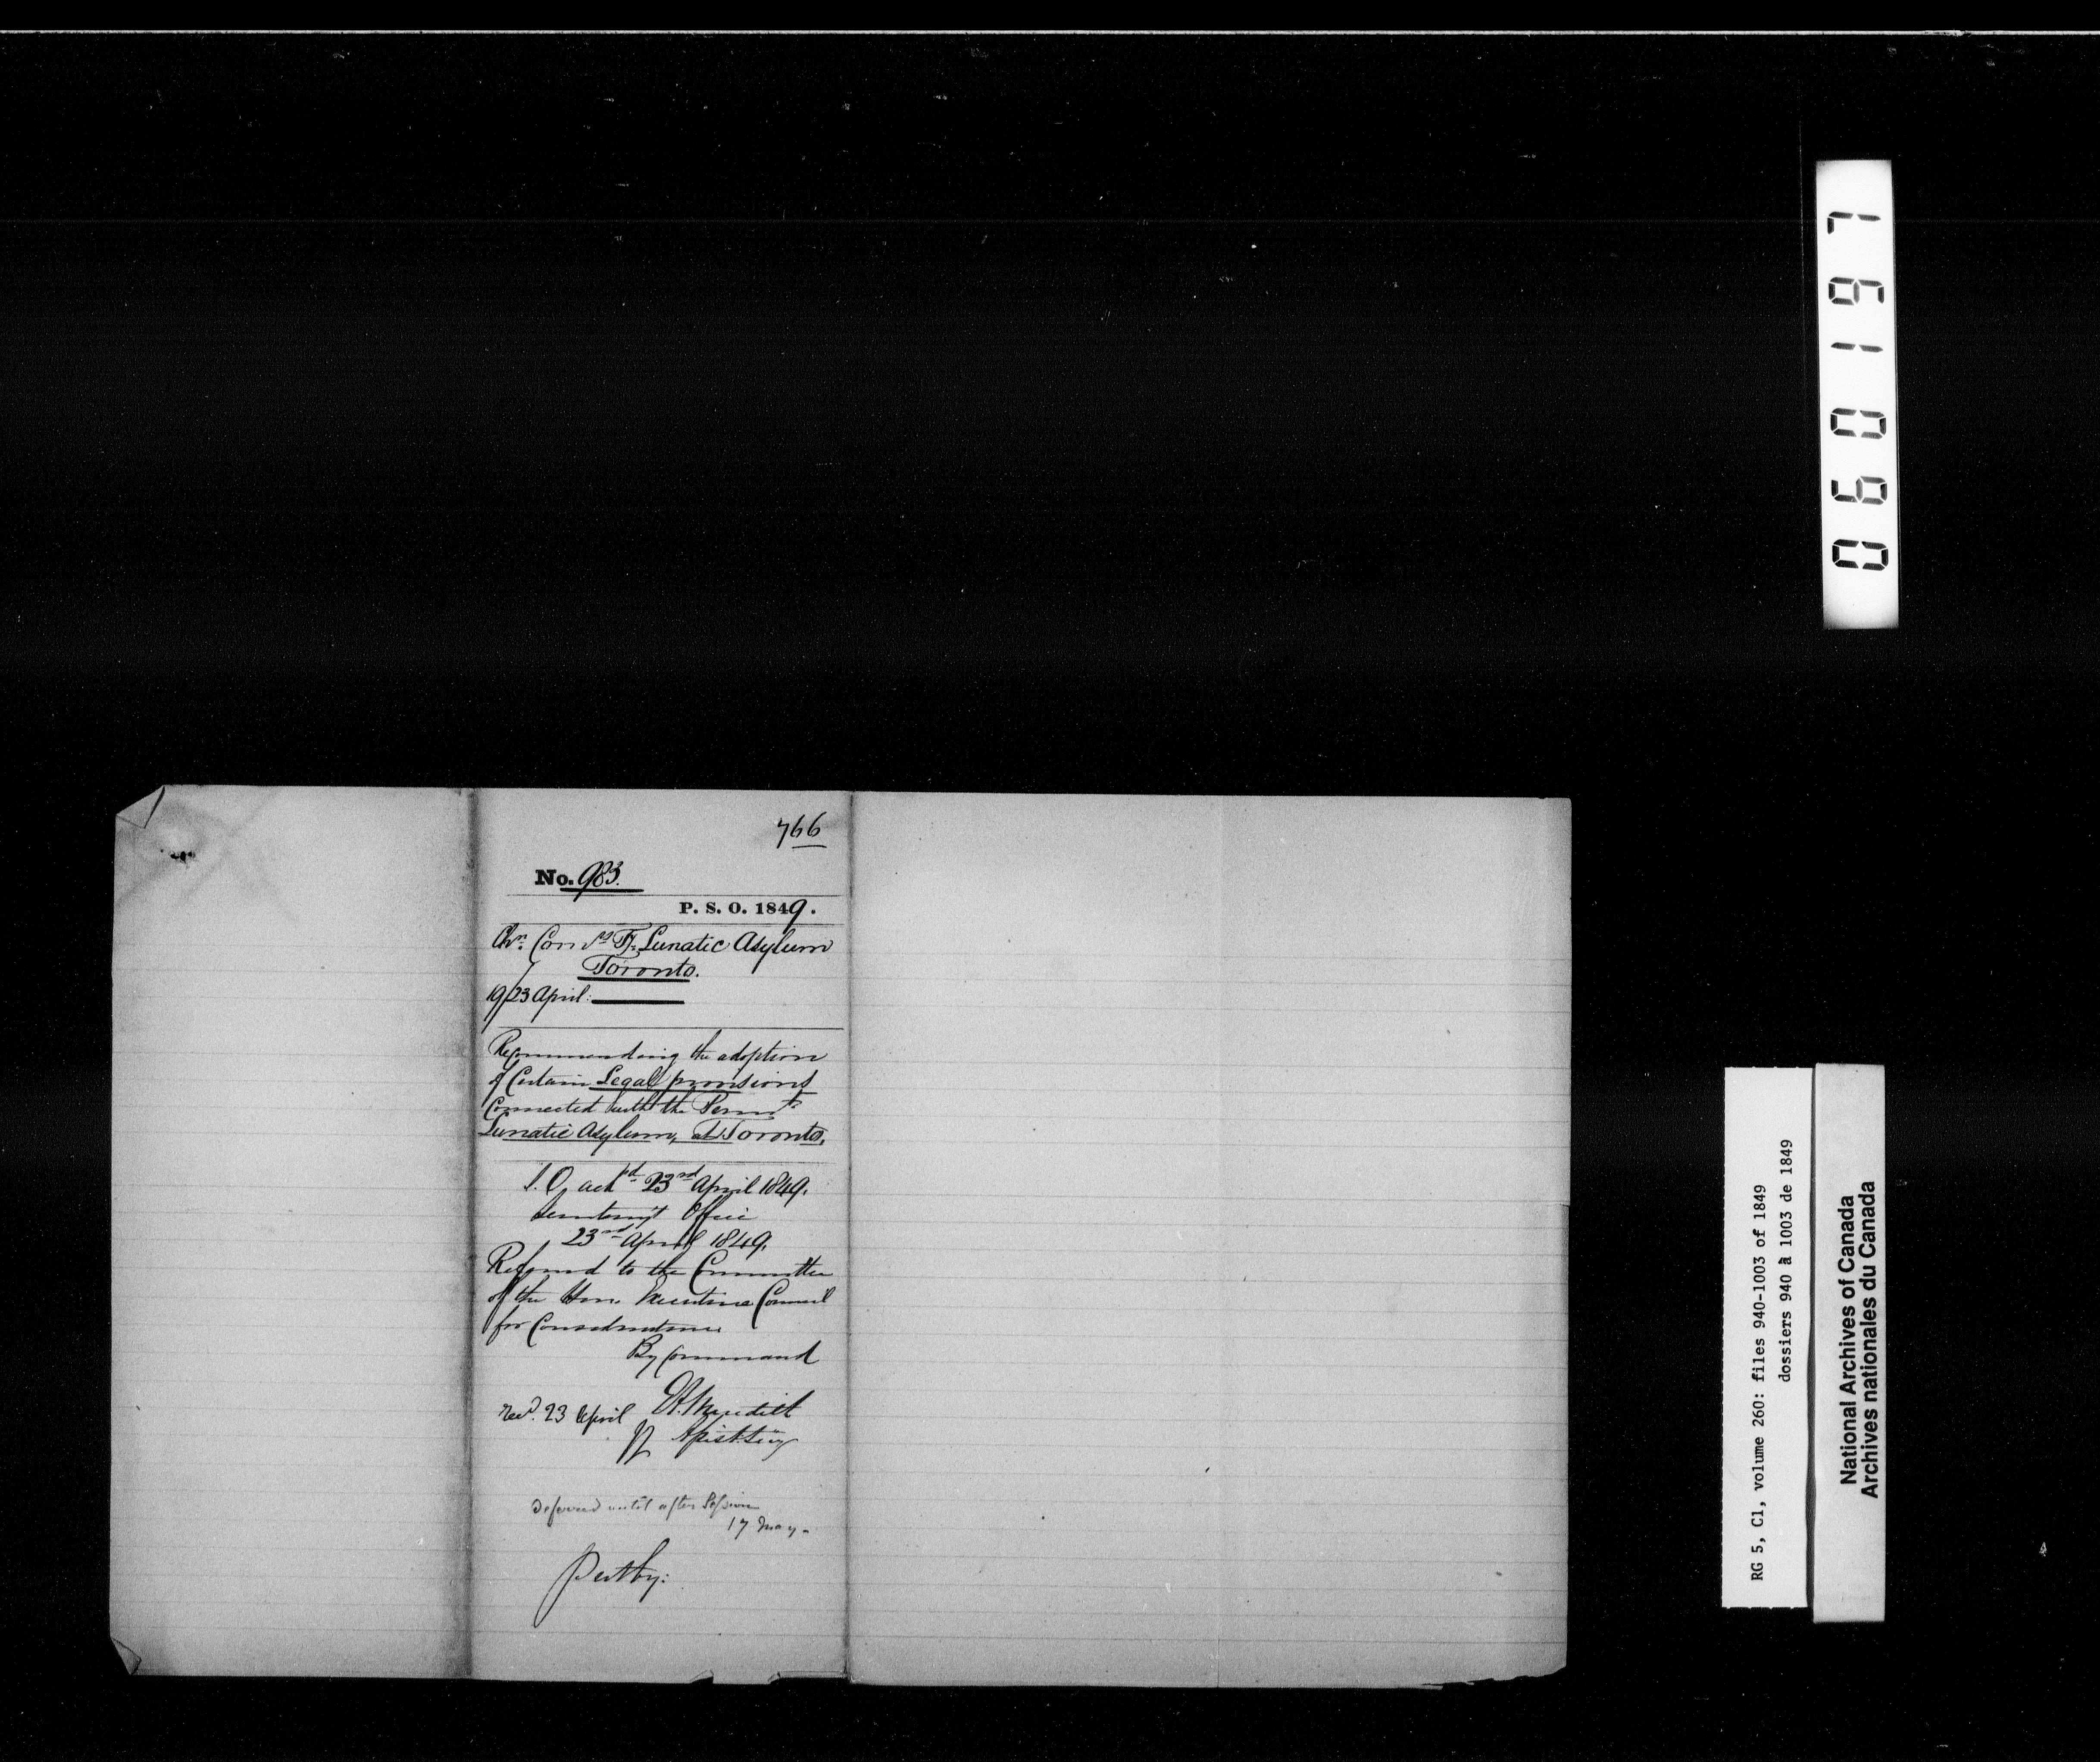 766
No. 983.
P. S. O. 1849.
Chn. Comrs Ty. Lunatic Asylum
Toronto.
19/23 April:
Recommending the adoption
of Certain Legal provisions
Connected with the Permt.
Lunatic Asylum, at Toronto.
ackd 23rd April 1849.
Secretary's Office
23rd April 1849.
Referred to the Committee
of the Hon. Executive Council
for Consideration
By Command
Recd. 23 April E A Meredith
Assist. Secy
Deferred until after Session
17 May.
091097
RG 5, C1, volume 260: files 940-1003 of 1849
dossiers 940 à 1003 de 1849
National Archives of Canada
Archives nationales du Canada